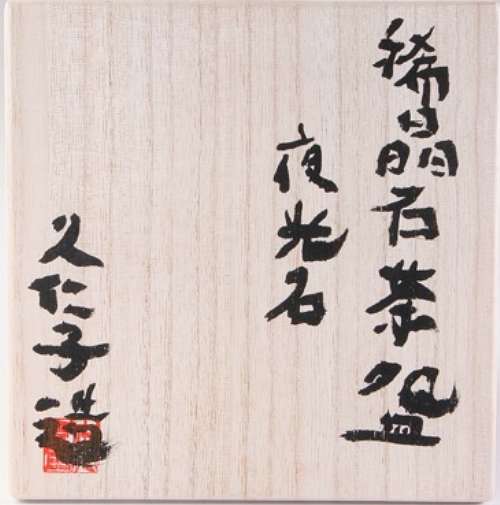 稀晶石茶盌
夜光石
久仁子造